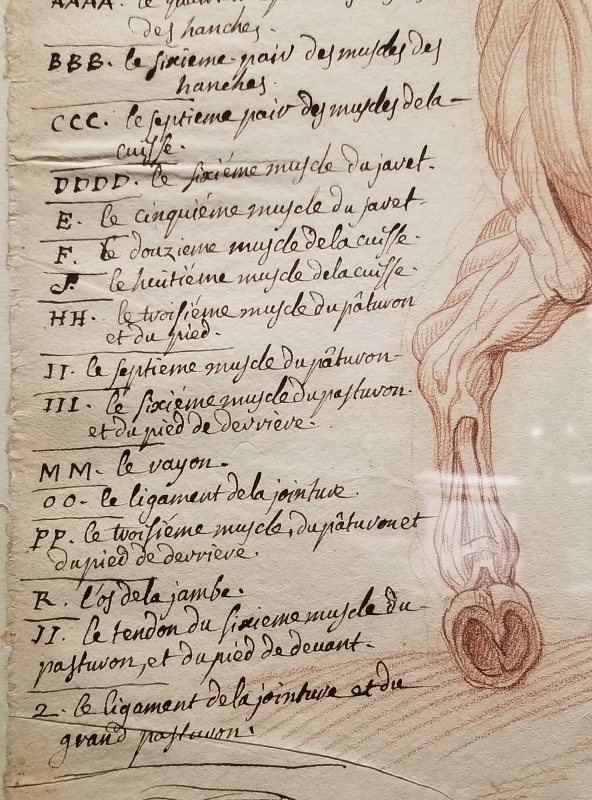 AAAA. le
des hanches.
BBB. le sixieme pair des muscles des
hanches.
CCC. le septieme pair des muscles de la
cuisse.
DDDD. le sixiéme muscle du javet.
E. le cinquiéme muscle du javet.
F. le douzieme muscle de la cuisse.
le huitiéme muscle de la cuisse.
HH. le troisiéme muscle du pâturon
et du pied.
II. le septieme muscle du pâturon
III. le sixiéme muscle du pasturon
et du pièd de derriére.
MM. le rayon.
OO. le ligament de la jointure
PP. le troisiéme muscle, du pâturon et
du pièd de derriére.
R. l'os de la jambe.
II. le tendon du sixieme muscle du
pasturon, et du pièd de devant.
2. le ligament de la jointure et du
grand pasturon.